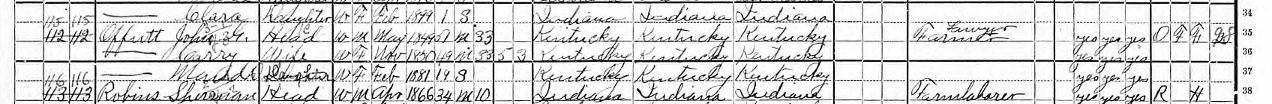 115 115 — Clara Daughter W F Feb 1899 1 S Indiana Indiana Indiana 34
112 112 Offutt John Head W M May 1849 51 M 33 Kentucky Kentucky Kentucky Farmer Lawyer yes yes yes O F F 35
— Carry Wife W F Nov 1850 49 M 33 5 3 Kentucky Kentucky Kentucky yes yes yes 36
116 116 — Daughter W F Feb 1881 19 S Kentucky Kentucky Kentucky yes yes yes 37
113 113 Robins Sherman Head W M Apr 1866 34 M 10 Indiana Indiana Indiana Farmlaborer yes yes yes R H 38